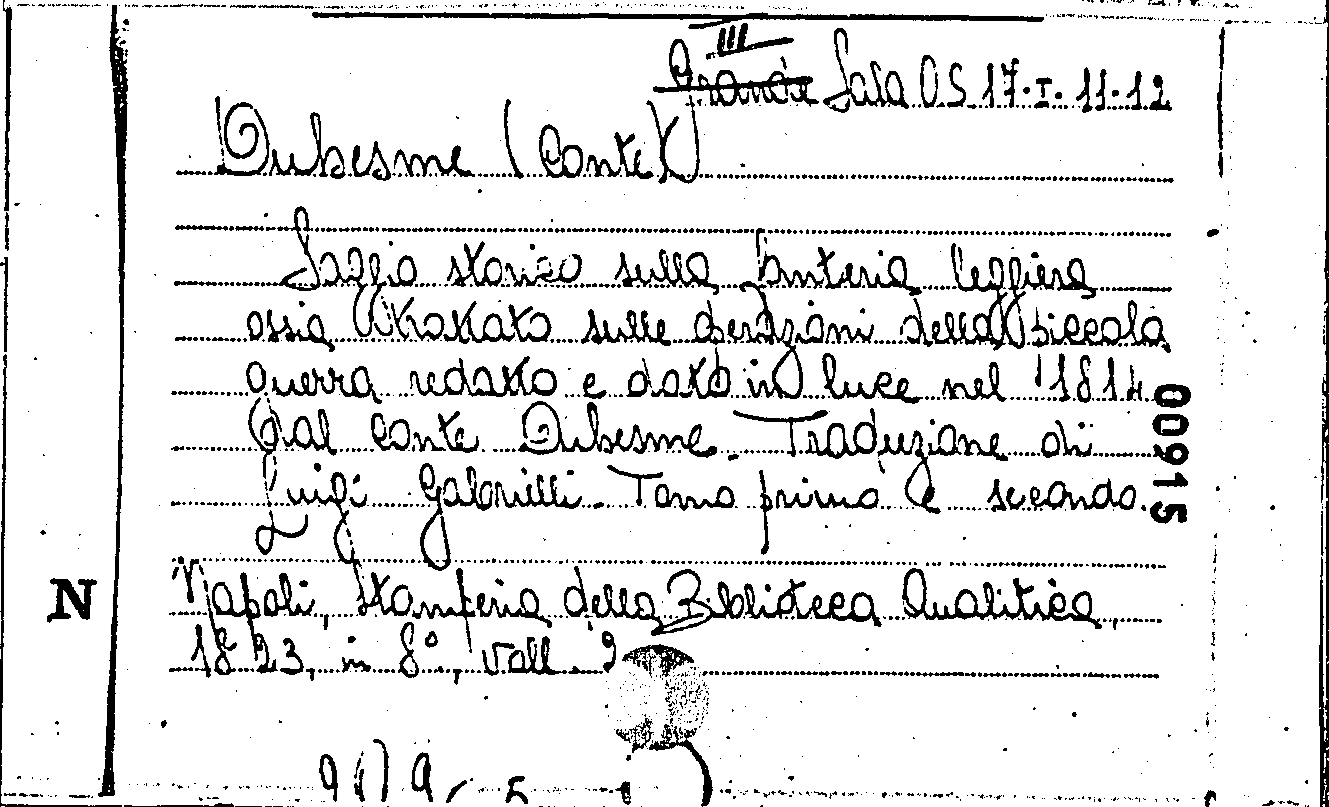 III
Grande Sala OS 17.I.11.12
Duhesme (Conte)
Saggio storico sulla fanteria leggiera
ossia trattato sulle operazioni della piccola
guerra redatto e dato in luce nel 1814
dal conte Duhesme. Traduzione di
Luigi Gabrielli. Tomo primo e secondo.
00915
Napoli, Stamperia della Biblioteca Analitica,
N
1823, in 8°, voll. 2